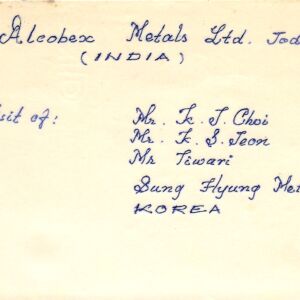 Alcobex Metals Ltd. Jod
(INDIA)
sit of:
Mr. K. J. Choi
Mr. K. S. Jeon
Mr Tiwari
Sung Hyung Me
KOREA